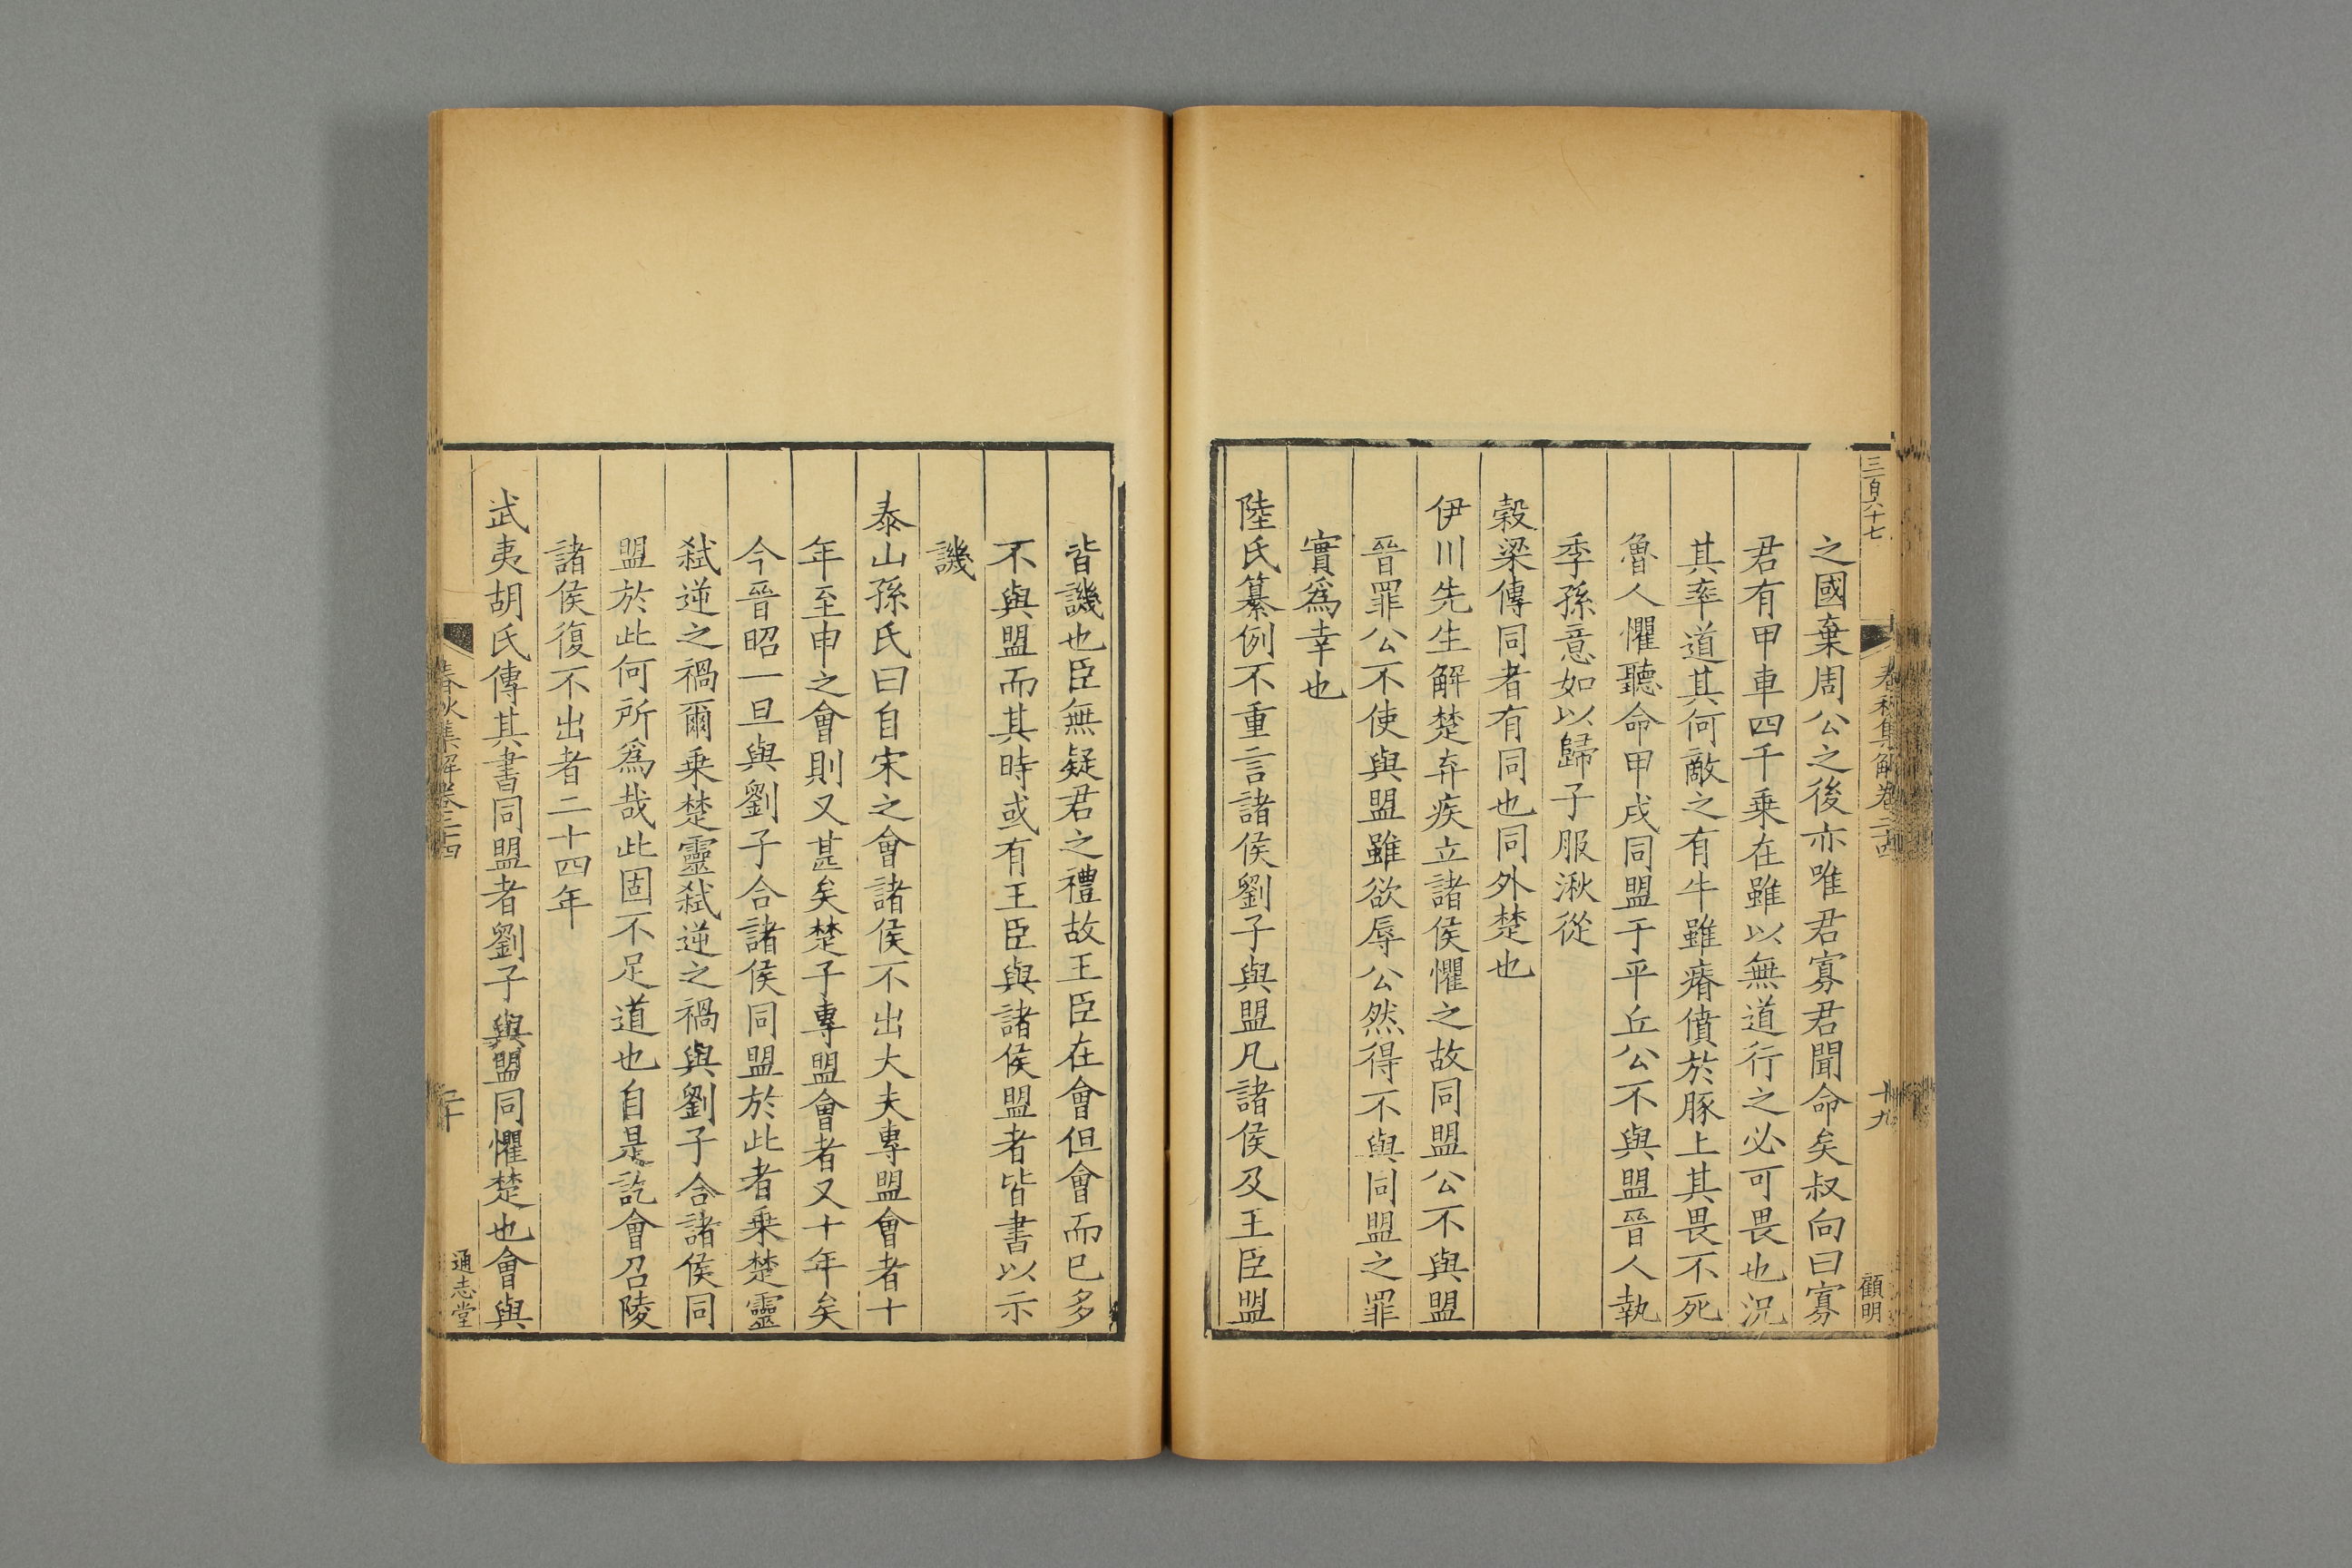 三百六十七
春秋集解卷二十四
十九
顧明
之國棄周公之後亦唯君寡君聞命矣叔向曰寡
君有甲車四千乗在雖以無道行之必可畏也況
其率道其何敵之有牛雖瘠僨於豚上其畏不死
魯人懼聽命甲戌同盟于平丘公不與盟晉人執
季孫意如以歸子服湫從
穀梁傳同者有同也同外楚也
伊川先生解楚弃疾立諸侯懼之故同盟公不與盟
晉罪公不使與盟雖欲辱公然得不與同盟之罪
實爲幸也
陸氏纂例不重言諸侯劉子與盟凡諸侯及王臣盟
皆譏也臣無疑君之禮故王臣在會但會而已多
不與盟而其時或有王臣與諸侯盟者皆書以示
譏
泰山孫氏曰自宋之會諸侯不出大夫專盟會者十
年至申之會則又甚矣楚子專盟會者又十年矣
今晉昭一旦與劉子合諸侯同盟於此者乗楚靈
弑逆之禍爾乗楚靈弑逆之禍與劉子合諸侯同
盟於此何所爲哉此固不足道也自是訖會召陵
諸侯復不出者二十四年
武夷胡氏傳其書同盟者劉子與盟同懼楚也會與
春秋集解卷二十四
二十
通志堂